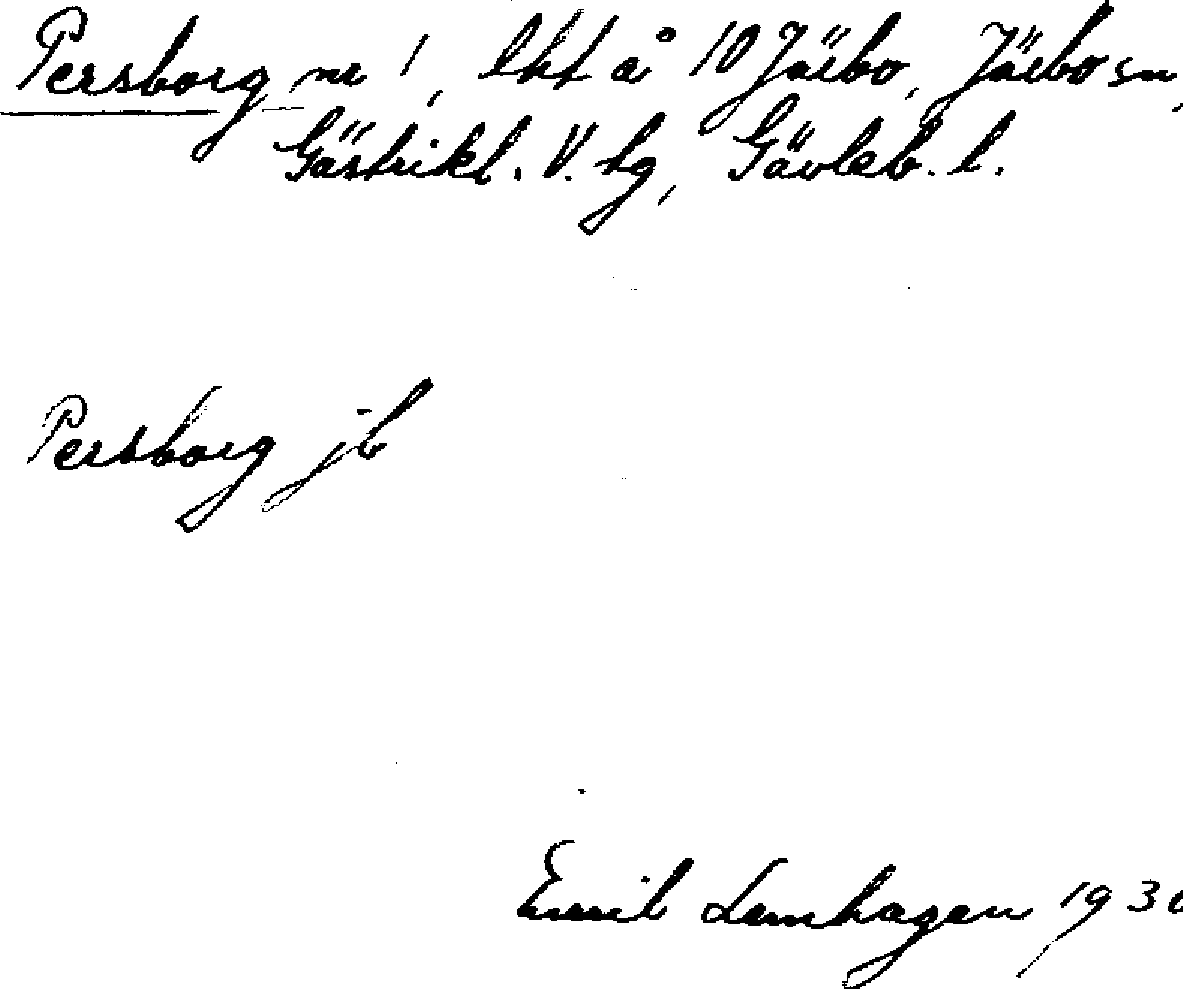 Persborg nr 1, lht å 10 Järbo, Järbo sn,
Gästrikl. V. tg, Gävleb. l.
Persborg jb
Emil Lemhagen 1930